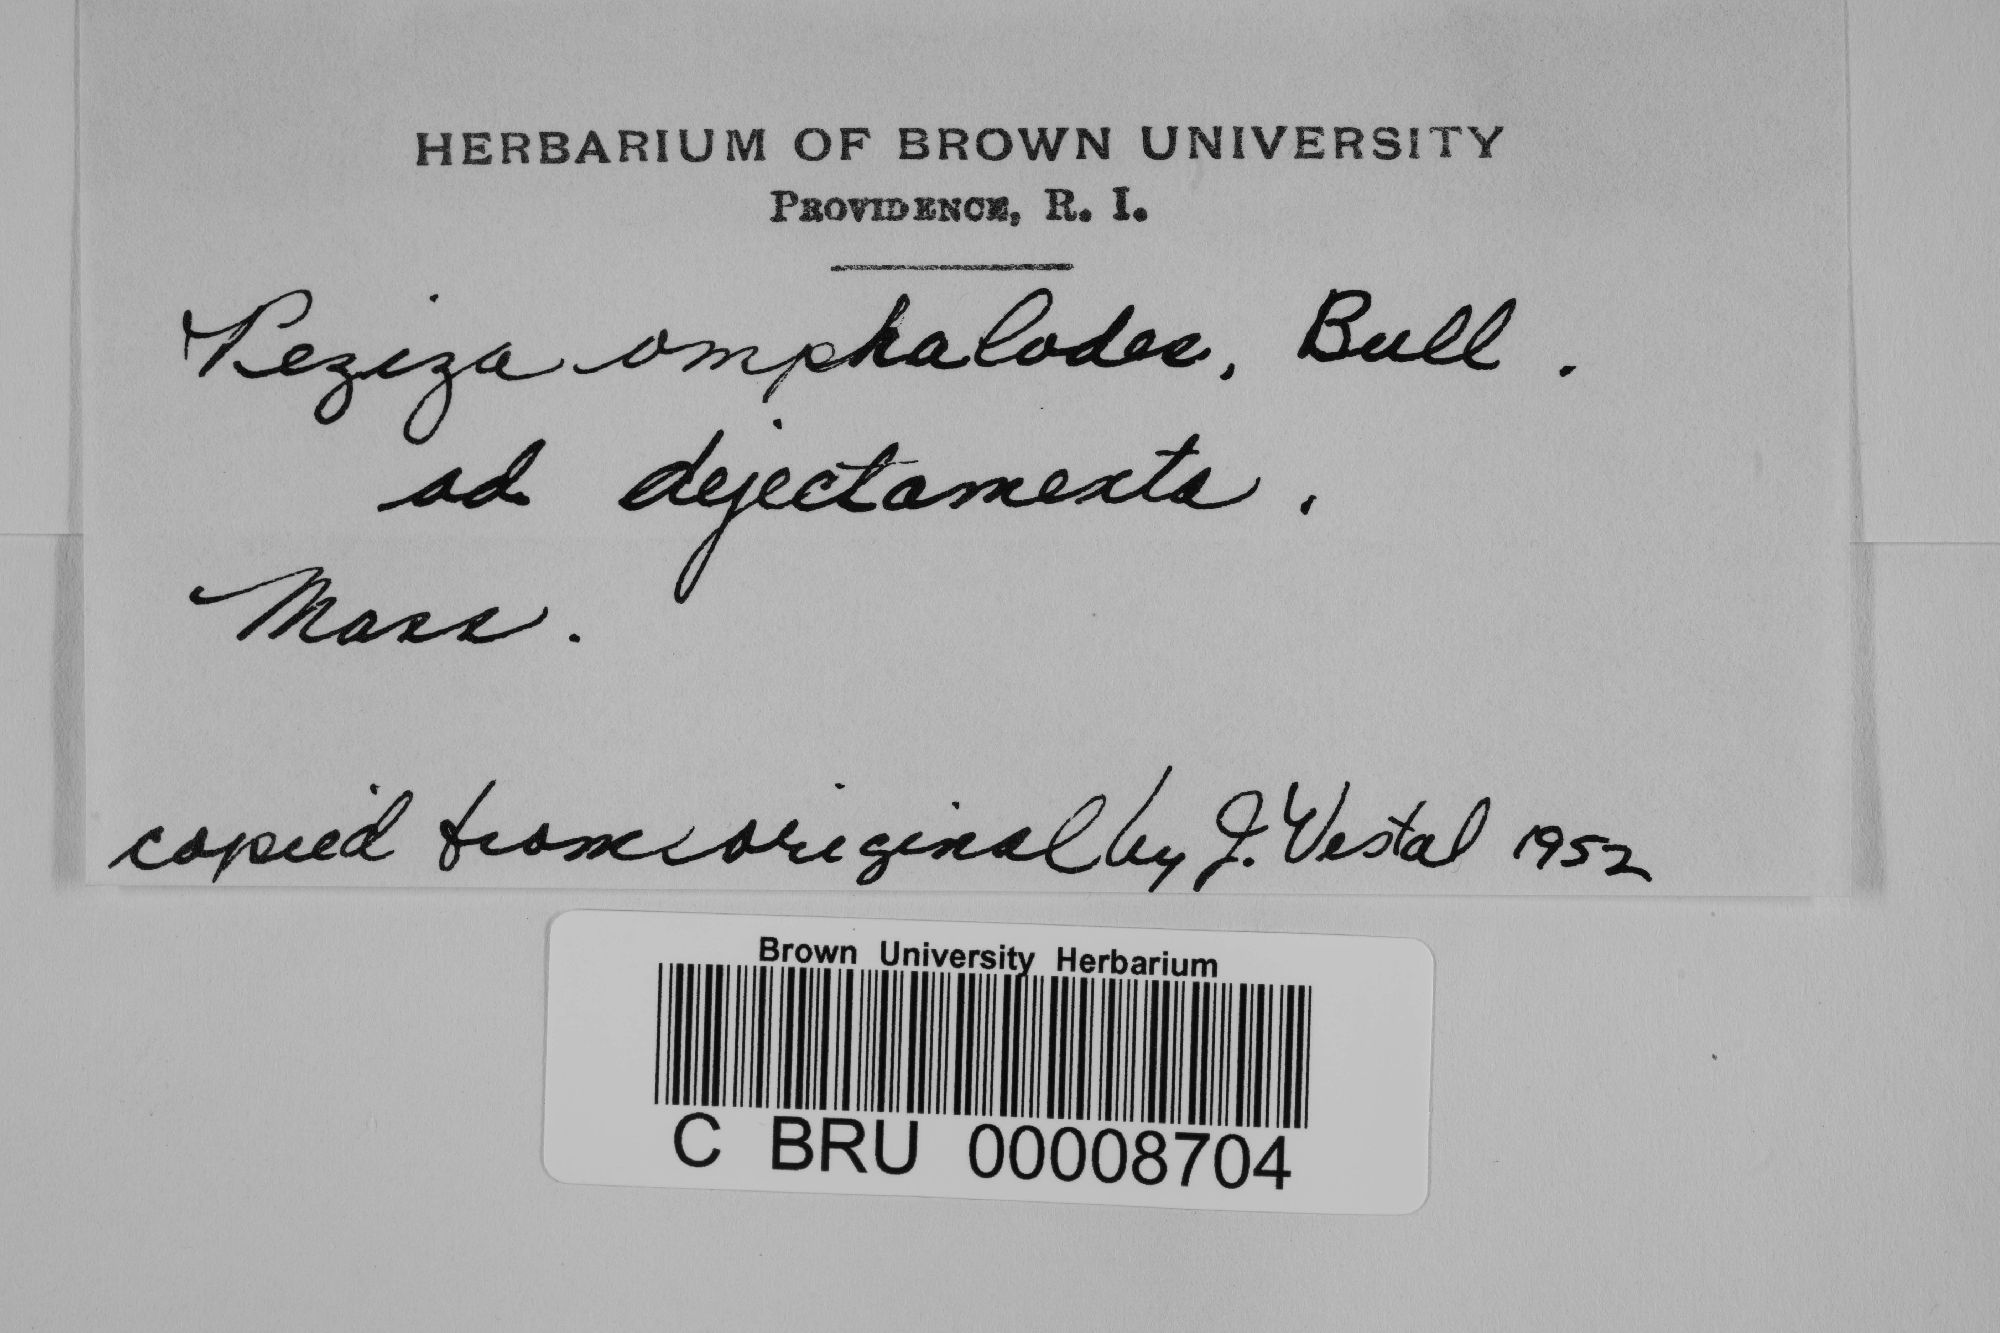 HERBARIUM OF BROWN UNIVERSITY
PROVIDENCE, R. I.
Peziza omphalodes, Bull.
ad dejectamenta.
Mass.
copied from original by J. Vestal 1952
Brown University Herbarium
C BRU 00008704